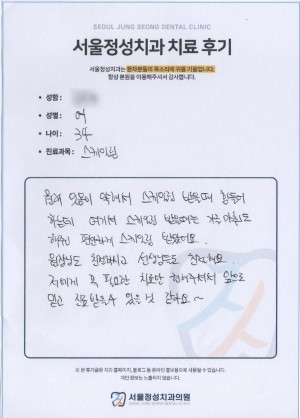 SEOUL JUNG SEONG DENTAL CLINIC
서울정성치과 치료 후기
서울정성치과는 환자분들의 목소리에 귀를 기울입니다.
항상 본원을 이용해주셔서 감사합니다.
• 성함 :
• 성별 : 여
• 나이 : 34
• 진료과목 : 스케일링
원래 잇몸이 약해서 스케일링 받을때 힘들어
하는데 여기서 스케일링 받을때는 거의 아픔도
편안하게 스케일링 받았어요.
원장님도 친절하시고 선생님들도 친절해요.
저에게 꼭 필요한 치료만 해주셔서 앞으로
믿고 진료받을수 있을 것 같아요~
※ 본 후기글은 치과 홈페이지, 블로그 등 온라인 홍보용으로 사용될 수 있습니다.
개인 정보는 노출되지 않습니다.
서울정성치과의원
SEOUL JUNG SEONG DENTAL CLINIC